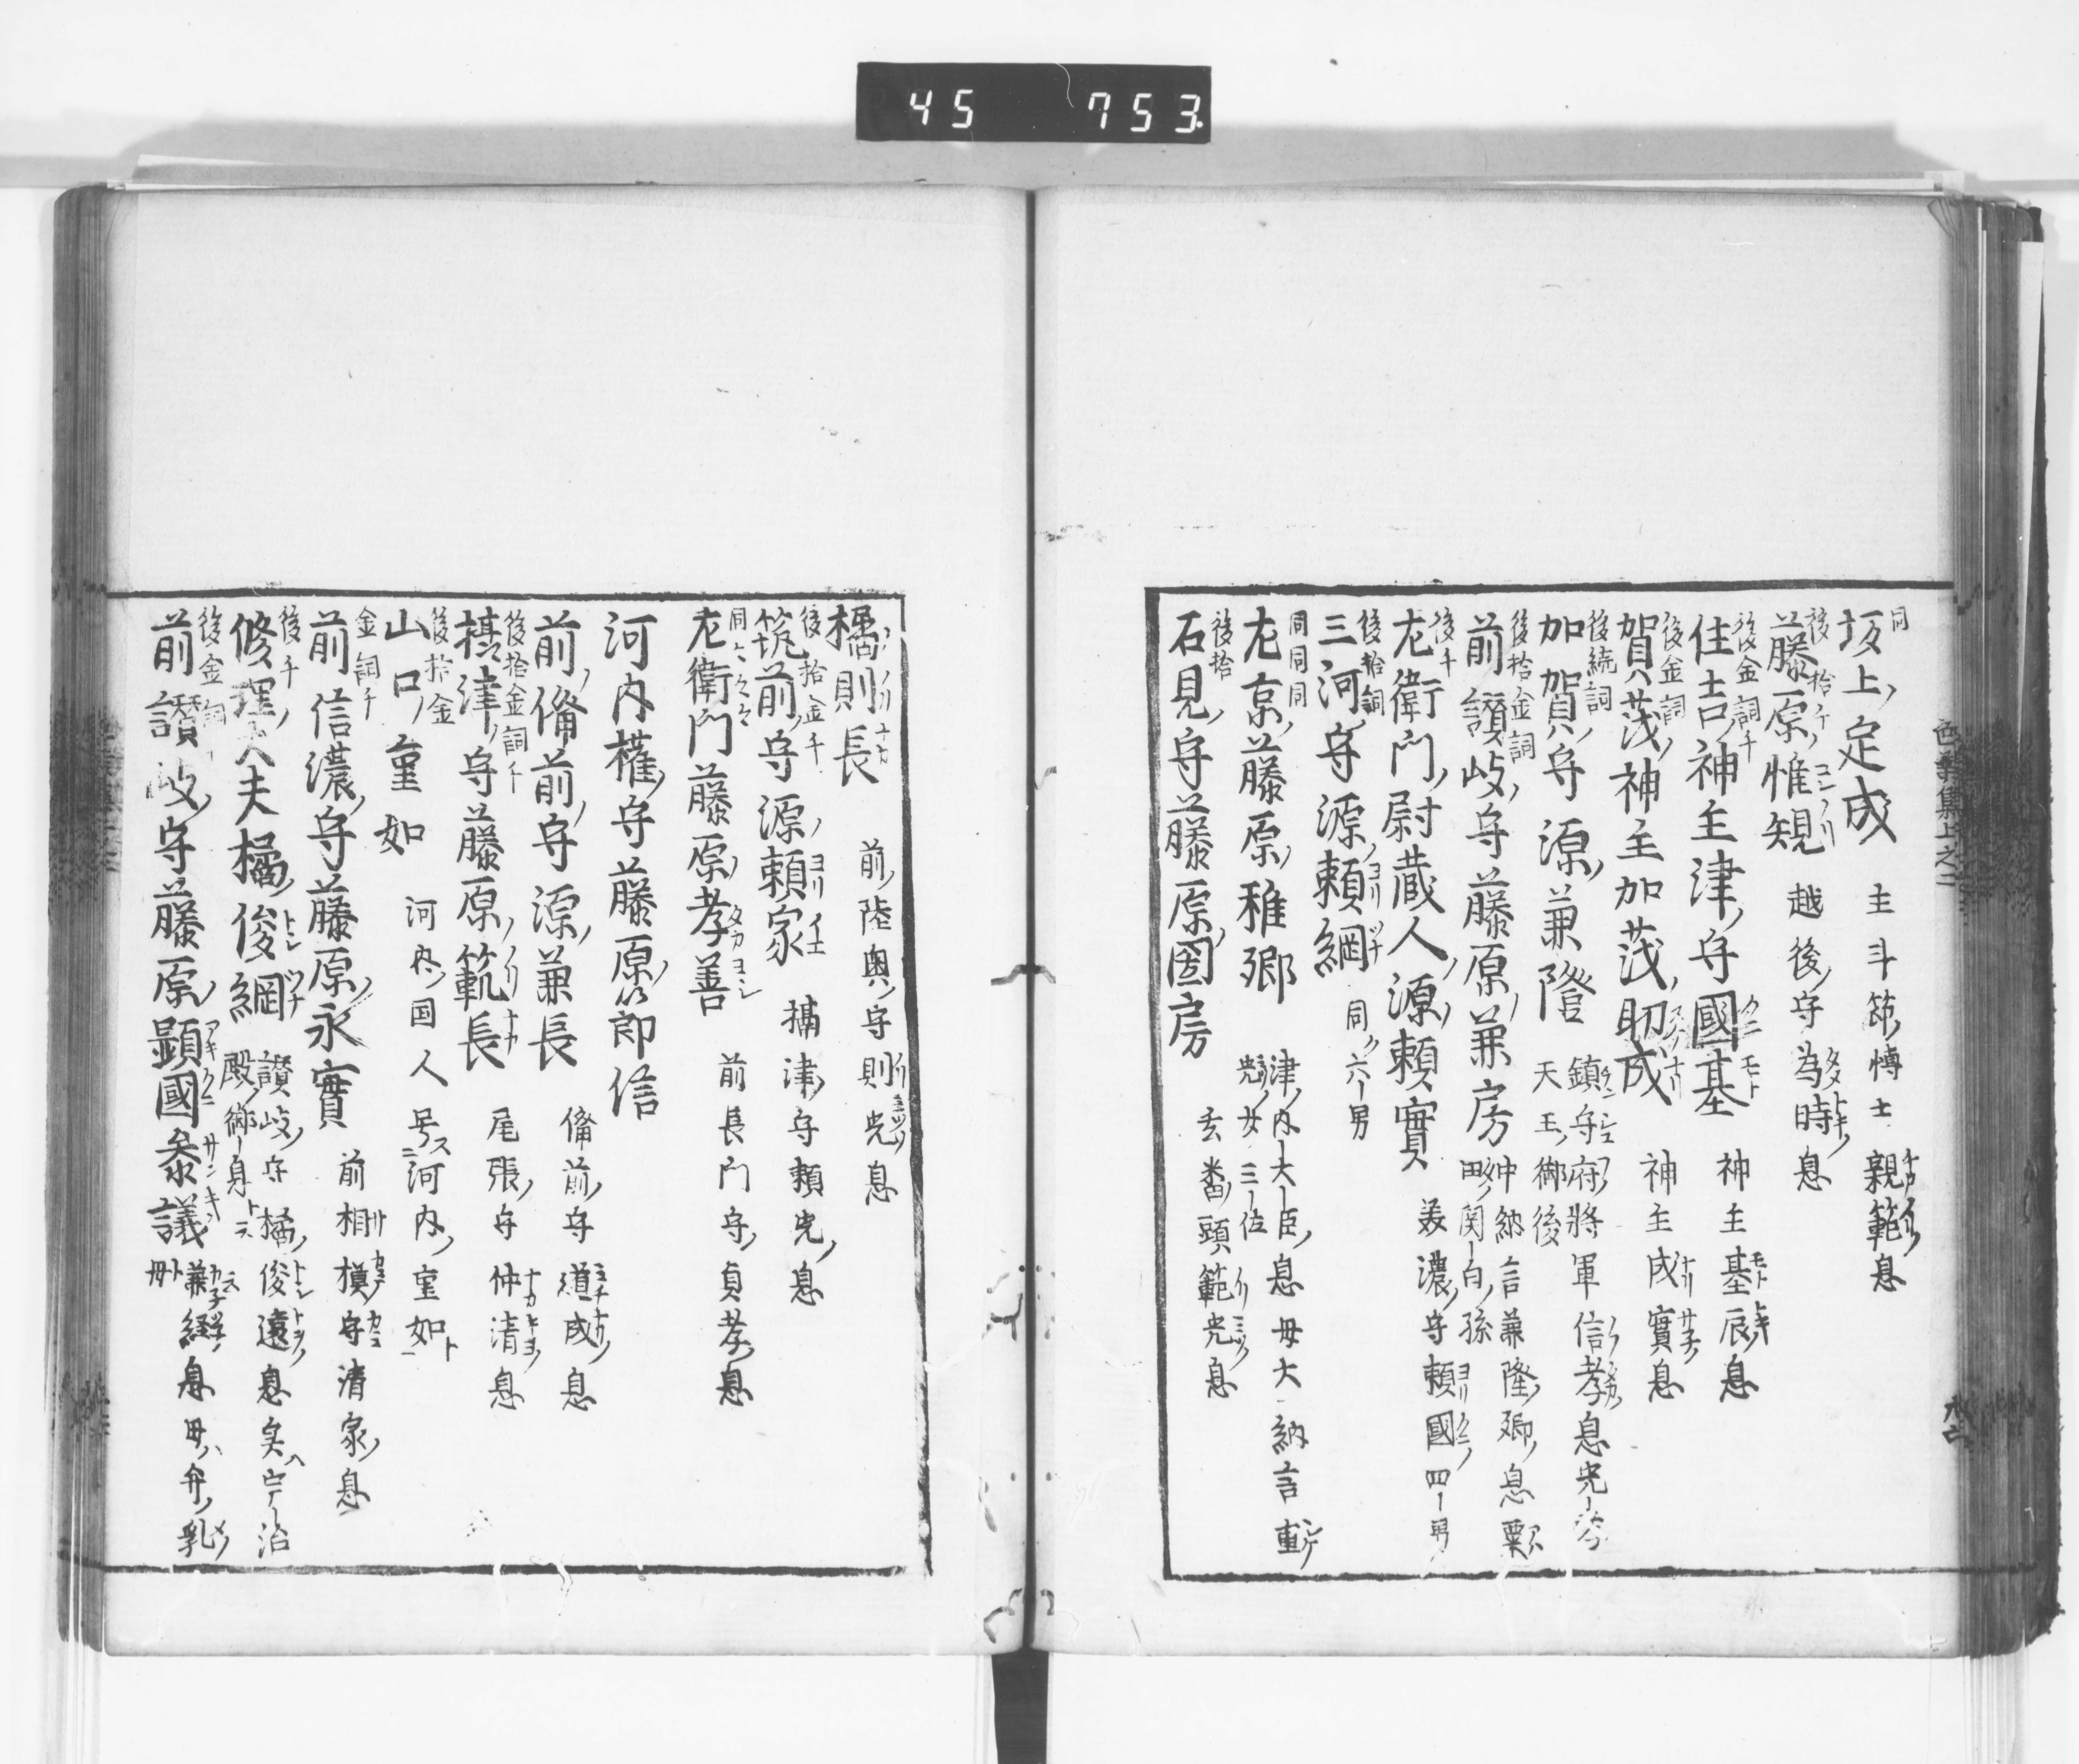 45 753
同
坂上定成 主斗節博士親範息
後拾千
藤原惟規 越後守為時息
後金詞千
住吉神主津守國基 神主基辰息
後金詞
賀茂神主加茂成 神主成實息
後続詞
加賀守源兼隆 鎮守府將軍信孝息
天王御後
後拾金詞
前讃岐守藤原兼房 中納言兼隆卿息粟
田関白孫
後千
左衛門尉蔵人源頼實 美濃守頼國四男
後拾詞
三河守源頼綱 同六男
同同同
左京藤原 津内大臣息母大納言重
光女三位
後拾
石見守藤原国房 玄番頭範光息
橘則長 前陸奥守則光息
後拾金千
筑前守源頼家 攝津守頼光息
同
左衛門藤原孝善 前長門守貞孝息
河内權守藤原節信
前備前守源兼長 備前守道成息
後拾金詞千
攝津守藤原範長 尾張守仲清息
後拾金
山口重如 河内国人号河内重如
金詞千
前信濃守藤原永實 前相模守清家息
後千
修理大夫橘俊綱 讃岐守橘俊遠息矣宇治
殿御身
後金詞
前讃岐守藤原顕國参議 兼経息母弁乳
母